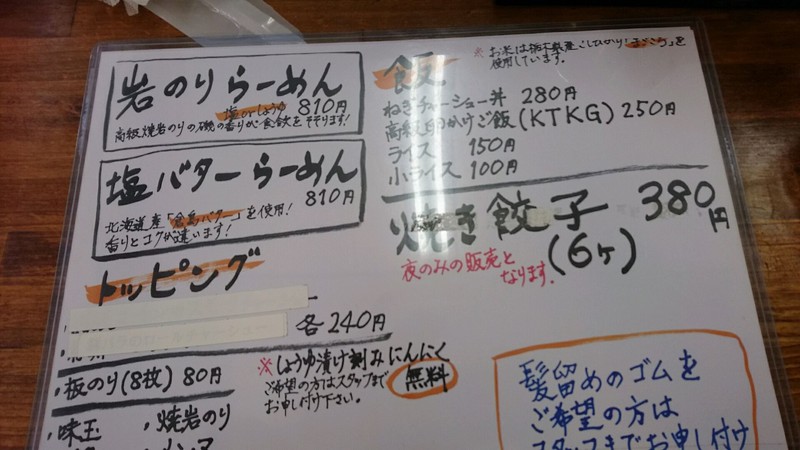 岩のりらーめん
塩orしょうゆ 810円
高級焼岩のりの磯の香りが食欲をそそります!
塩バターらーめん
810円
北海道産「倉島バター」を使用!
香りとコクが違います!
トッピング
各240円
・板のり(8枚) 80円
・味玉 ・焼岩のり
※しょうゆ漬け刻みにんにく
ご希望の方はスタッフまで
お申し付け下さい。
無料
飯
※お米は栃木県産こしひかり
使用しています。
ねぎチャーシュー丼 280円
高級卵かけご飯(KTKG) 250円
ライス 150円
小ライス 100円
焼き餃子 380円
(6ヶ)
夜のみの販売と
なります。
髪留めのゴムを
ご希望の方は
スタッフまでお申し付け